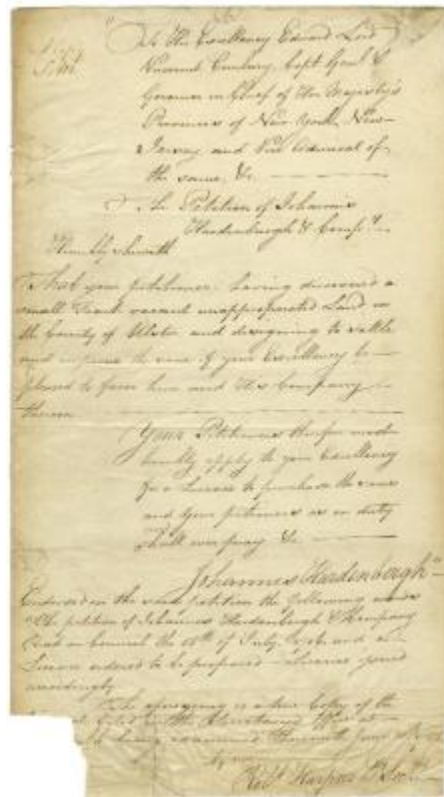 "To His Excellency Edward Lord
Viscount Cornbury, Capt. Genl. &
Governor in Chief of Her Majesty's
Provinces of New York, New-
Jersey and Vice Admiral of
the same, &c.
The Petition of Johannis
Hardenburgh & Compy.
Humbly sheweth
That your petitioner having discovered a
small Tract vacant unappropriated Land in
the County of Ulster and designing to settle
and improve the same if your Excellency be
pleased to favor him and His Company
therein
Your Petitioner therefore most
humbly apply to your Excellency
for a License to purchase the same
and your petitioner as in duty
shall ever pray &c
Johannes Hardenbergh
Endorsed on the said petition the following words
"The petition of Johannes Hardenbergh & Company
Read in Council the of July, and a
License ordered to be prepared - License
accordingly
The aforegoing is a true Copy of the
filed in the Office
being examined therewith June
by me
Robt. Harpur D. Secy.